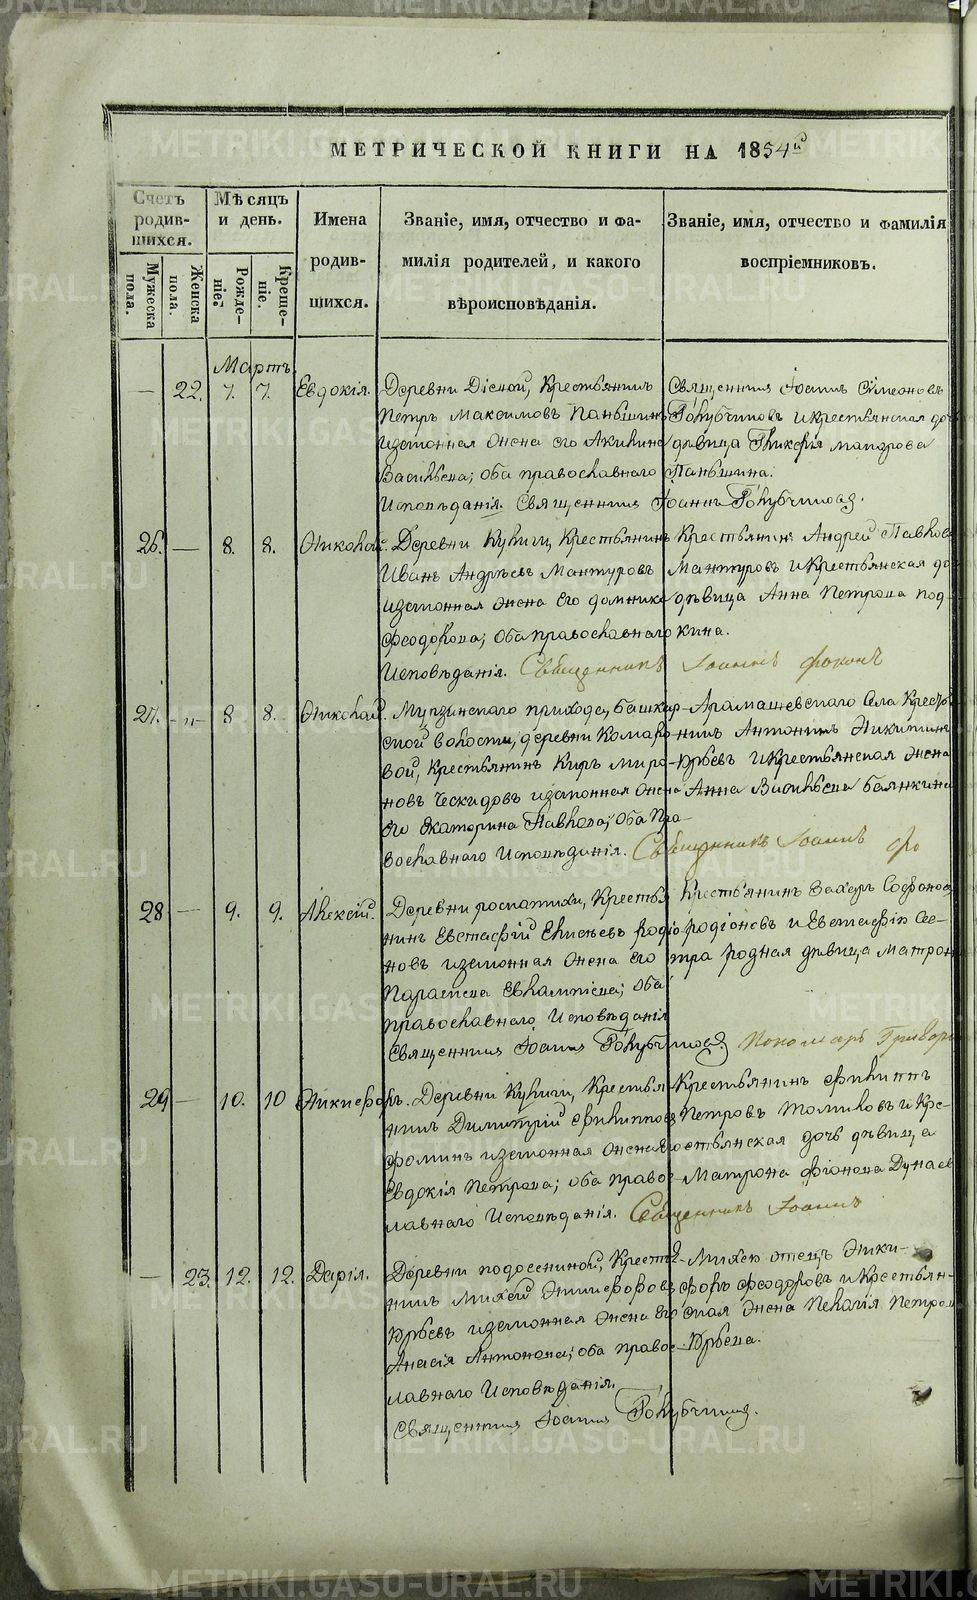 МЕТРИЧЕСКОЙ КНИГИ НА 1854й
Счетъ родив-шихся.
Мѣсяцъ и день.
Имена родив-шихся.
Званіе, имя, отчество и фа-
милія родителей, и какого
вѣроисповѣданія.
Званіе, имя, отчество и фамилія
воспріемниковъ.
Мужеска пола.
Женска пола.
Рожде-ніе.
Креще-ніе.
Мартъ
— 22. 7. 7. Евдокія.
Деревни Діевой, Крестьянинъ
Петръ Максимовъ Паньшинъ
изаконная жена его Акилина
Васильева; оба православнаго
Исповѣданія. Священникъ Іоаннъ Голубчиковъ.
Священникъ Іоаннъ Симеоновъ
Голубчиковъ и крестьянская доч
дѣвица Гликерія
Паньшина.
26. — 8. 8. Николай.
Деревни Кулиги, Крестьянинъ
Иванъ Андреевъ Мантуровъ
изаконная жена его домника
феодорова; оба православнаго
Исповѣданія. Священникъ Іоаннъ
Крестьянинъ Андрей Павлов
Мантуровъ и Крестьянская до
дѣвица Анна Петрова под-
кина.
27. -"- 8. 8. Николай.
Мугзинскаго прихода, башкар-
ской волости, деревни Комаро
вой, Крестьянинъ Киръ Миро-
новъ Ческидовъ изаконная жена
его Екатерина Павлова; оба Пра
вославнаго Исповѣданія. Священникъ Іоаннъ фо
Арамашевскаго Села Кресть
нинъ Антонинъ Никитинъ
Юрьевъ и Крестьянская жена
Анна Васильева балакина
28 — 9. 9. Алексій.
Деревни роскатихи, Крестья
нинъ Евстафій Елисеевъ родіо
новъ изаконная жена его
Параскева Евлампіева; оба
православнаго Исповѣданія
Священникъ Іоаннъ Голубчиковъ. Пономарь Григор
Крестьянинъ Захаръ Софонов
родіоновъ и Евстафія Сес-
тра родная дѣвица Матрон
29 — 10. 10 Никифоръ.
Деревни Кулиги, Крестья-
нинъ Димитрій филиппов
фоминъ изаконная жена его
Евдокія Петрова; оба право-
славнаго Исповѣданія. Священникъ Іоаннъ
Крестьянинъ филиппъ
Петровъ Толмиковъ и Кре-
стьянская дочь дѣвица
Матрона Дунаев
— 23. 12. 12. Дарія.
Деревни подосениной, Крестья
нинъ Михей Никифоровъ
Юрьевъ изаконная жена его
Анасія Антонова; оба право-
славнаго Исповѣданія.
Священникъ Іоаннъ Голубчиковъ.
Михею отецъ Ники-
форъ феодоровъ и Крестьян-
ская жена Пелагія Петров
Юрьева.
METRIKI.GASO-URAL.RU